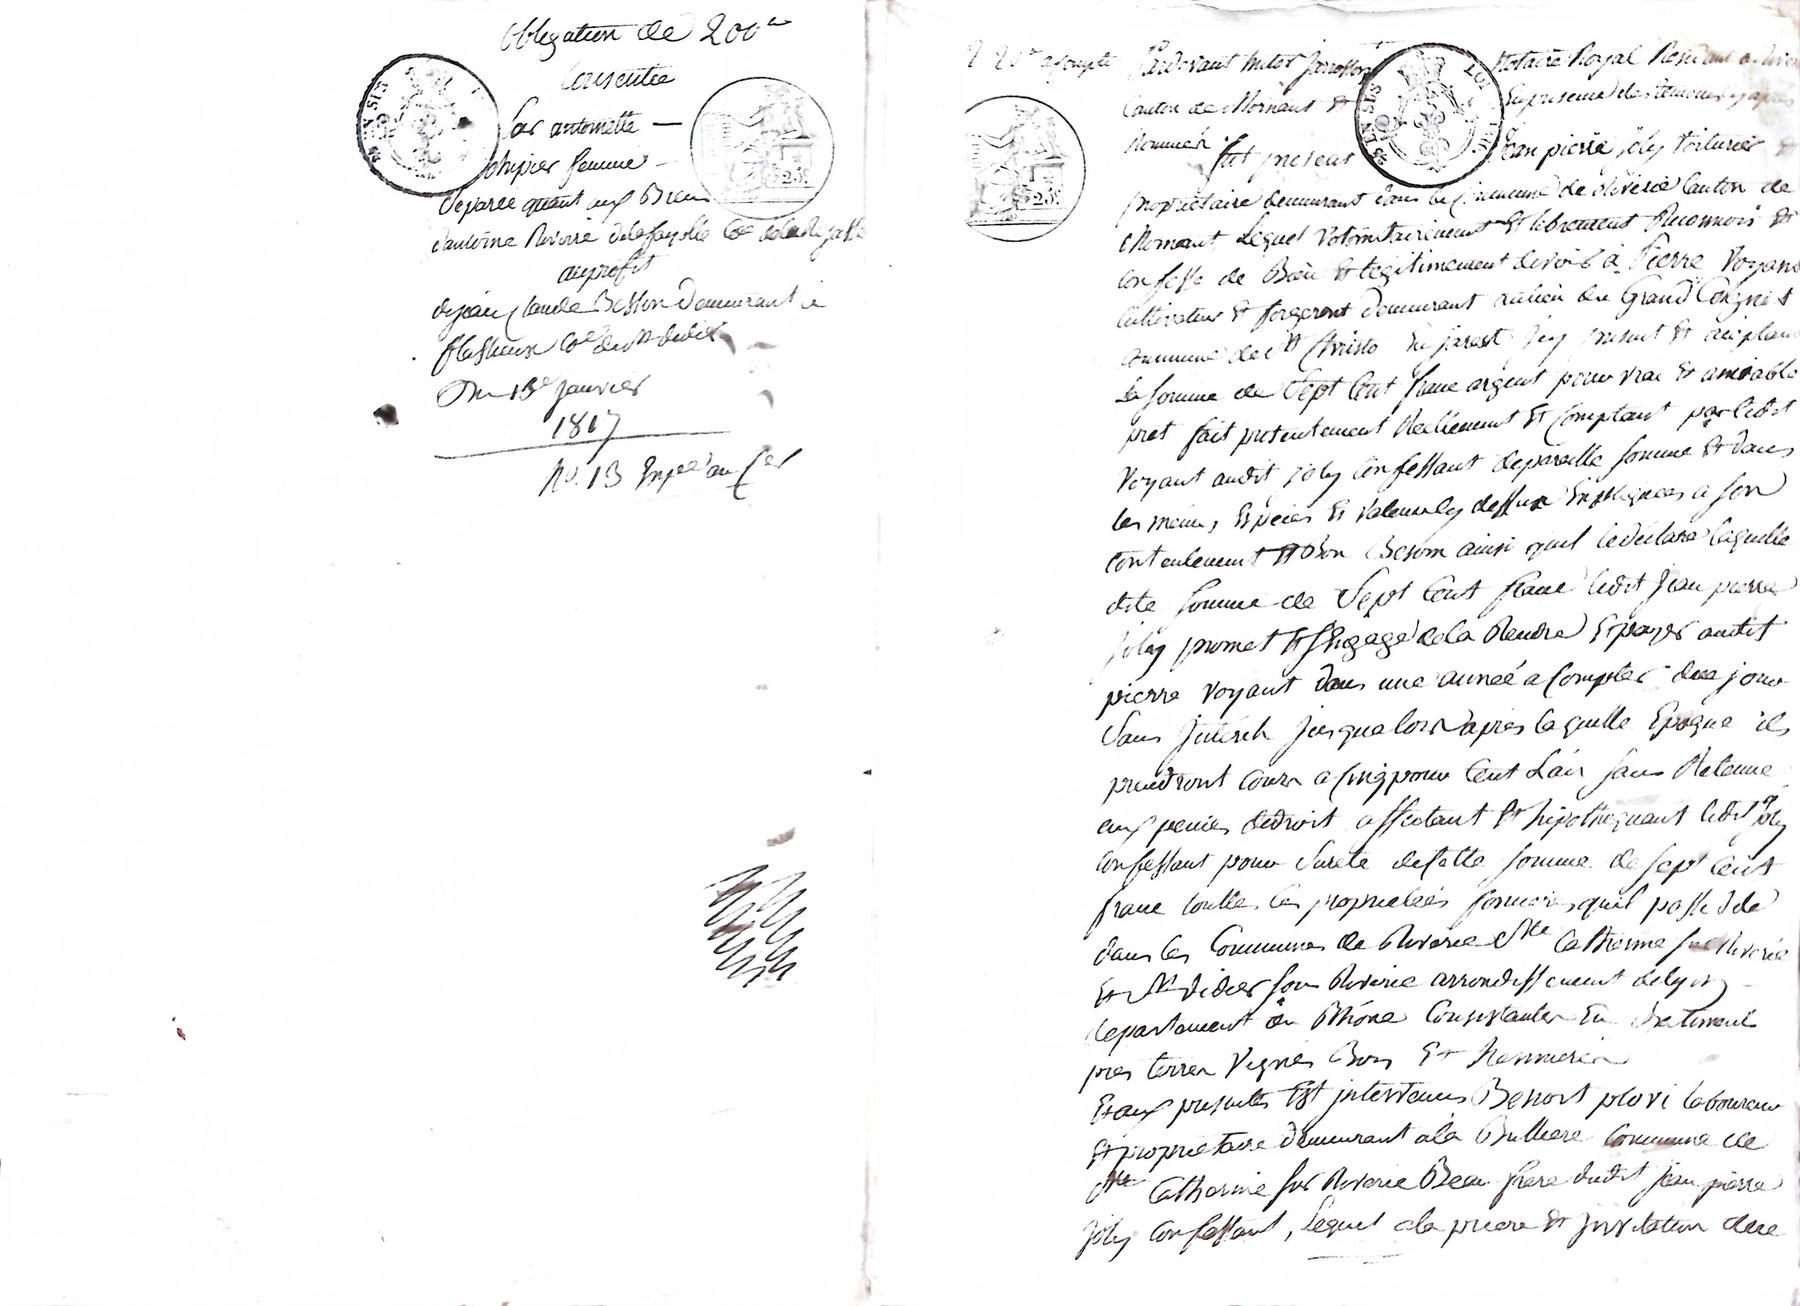 obligation de 200#
Consentie
Par antoinette —
femme
separée quant aux Biens
d'antoine Rivoire
au profit
de jean Claude Besson Demeurant a
Coe de St didier
Du 13e janvier
1817
No. 13
25c.
acompte
Pardevant Notaire Royal Resident a Riverie
Canton de Mornant Et En presence des temoins cy après
Nommés
fut present Jean pierre joly Voiturier &
proprietaire demeurant dans la Commune de Riverie Canton de
Mornant, Lequel Volontairement Et librement Reconnoit Et
Confesse de Bien Et legitimement devoir à Pierre Voyant
Cultivateur Et forgeront demeurant au lieu du Grand
Commune de St Christo En jarest jcy present Et acceptant
La somme de Sept Cent franc argent pour vrai Et amiable
pret fait presentement Reellement Et Comptant par ledit
Voyant audit joly Confessant de pareille somme Et dans
les memes Especes Et Valeurs cy dessus Expliquees a son
Contentement Et Bon Besoin ainsi quil le déclare laquelle
dite somme de Sept Cent franc ledit jean pierre
joly promet Et s'Engage de la Rendre Et payer audit
pierre Voyant dans une année a Compter de ce jour
Sans jnterets jusqualors apres laquelle Epoque ils
prendront cours a Cinq pour Cent L'an sans Retenue
aux peines de droit affectant Et hipothequant ledit joly
Confessant pour Sureté de Cette somme de sept Cent
franc touttes les proprietées foncieres quil possede
dans les Communes de Riverie Ste Catherine sur Riverie
Et St Didier sous Riverie arrondissement de Lyon
departement du Rhône Consistantes En Batiments
pres terres Vignes Bois Et
Et aux presentes Est jntervenus Benoit laboureur
Et proprietaire demeurant a la Commune de
Ste Catherine sur Riverie Beau frere dudit jean pierre
joly Confessant, Lequel a la priere Et jnvitation de ce